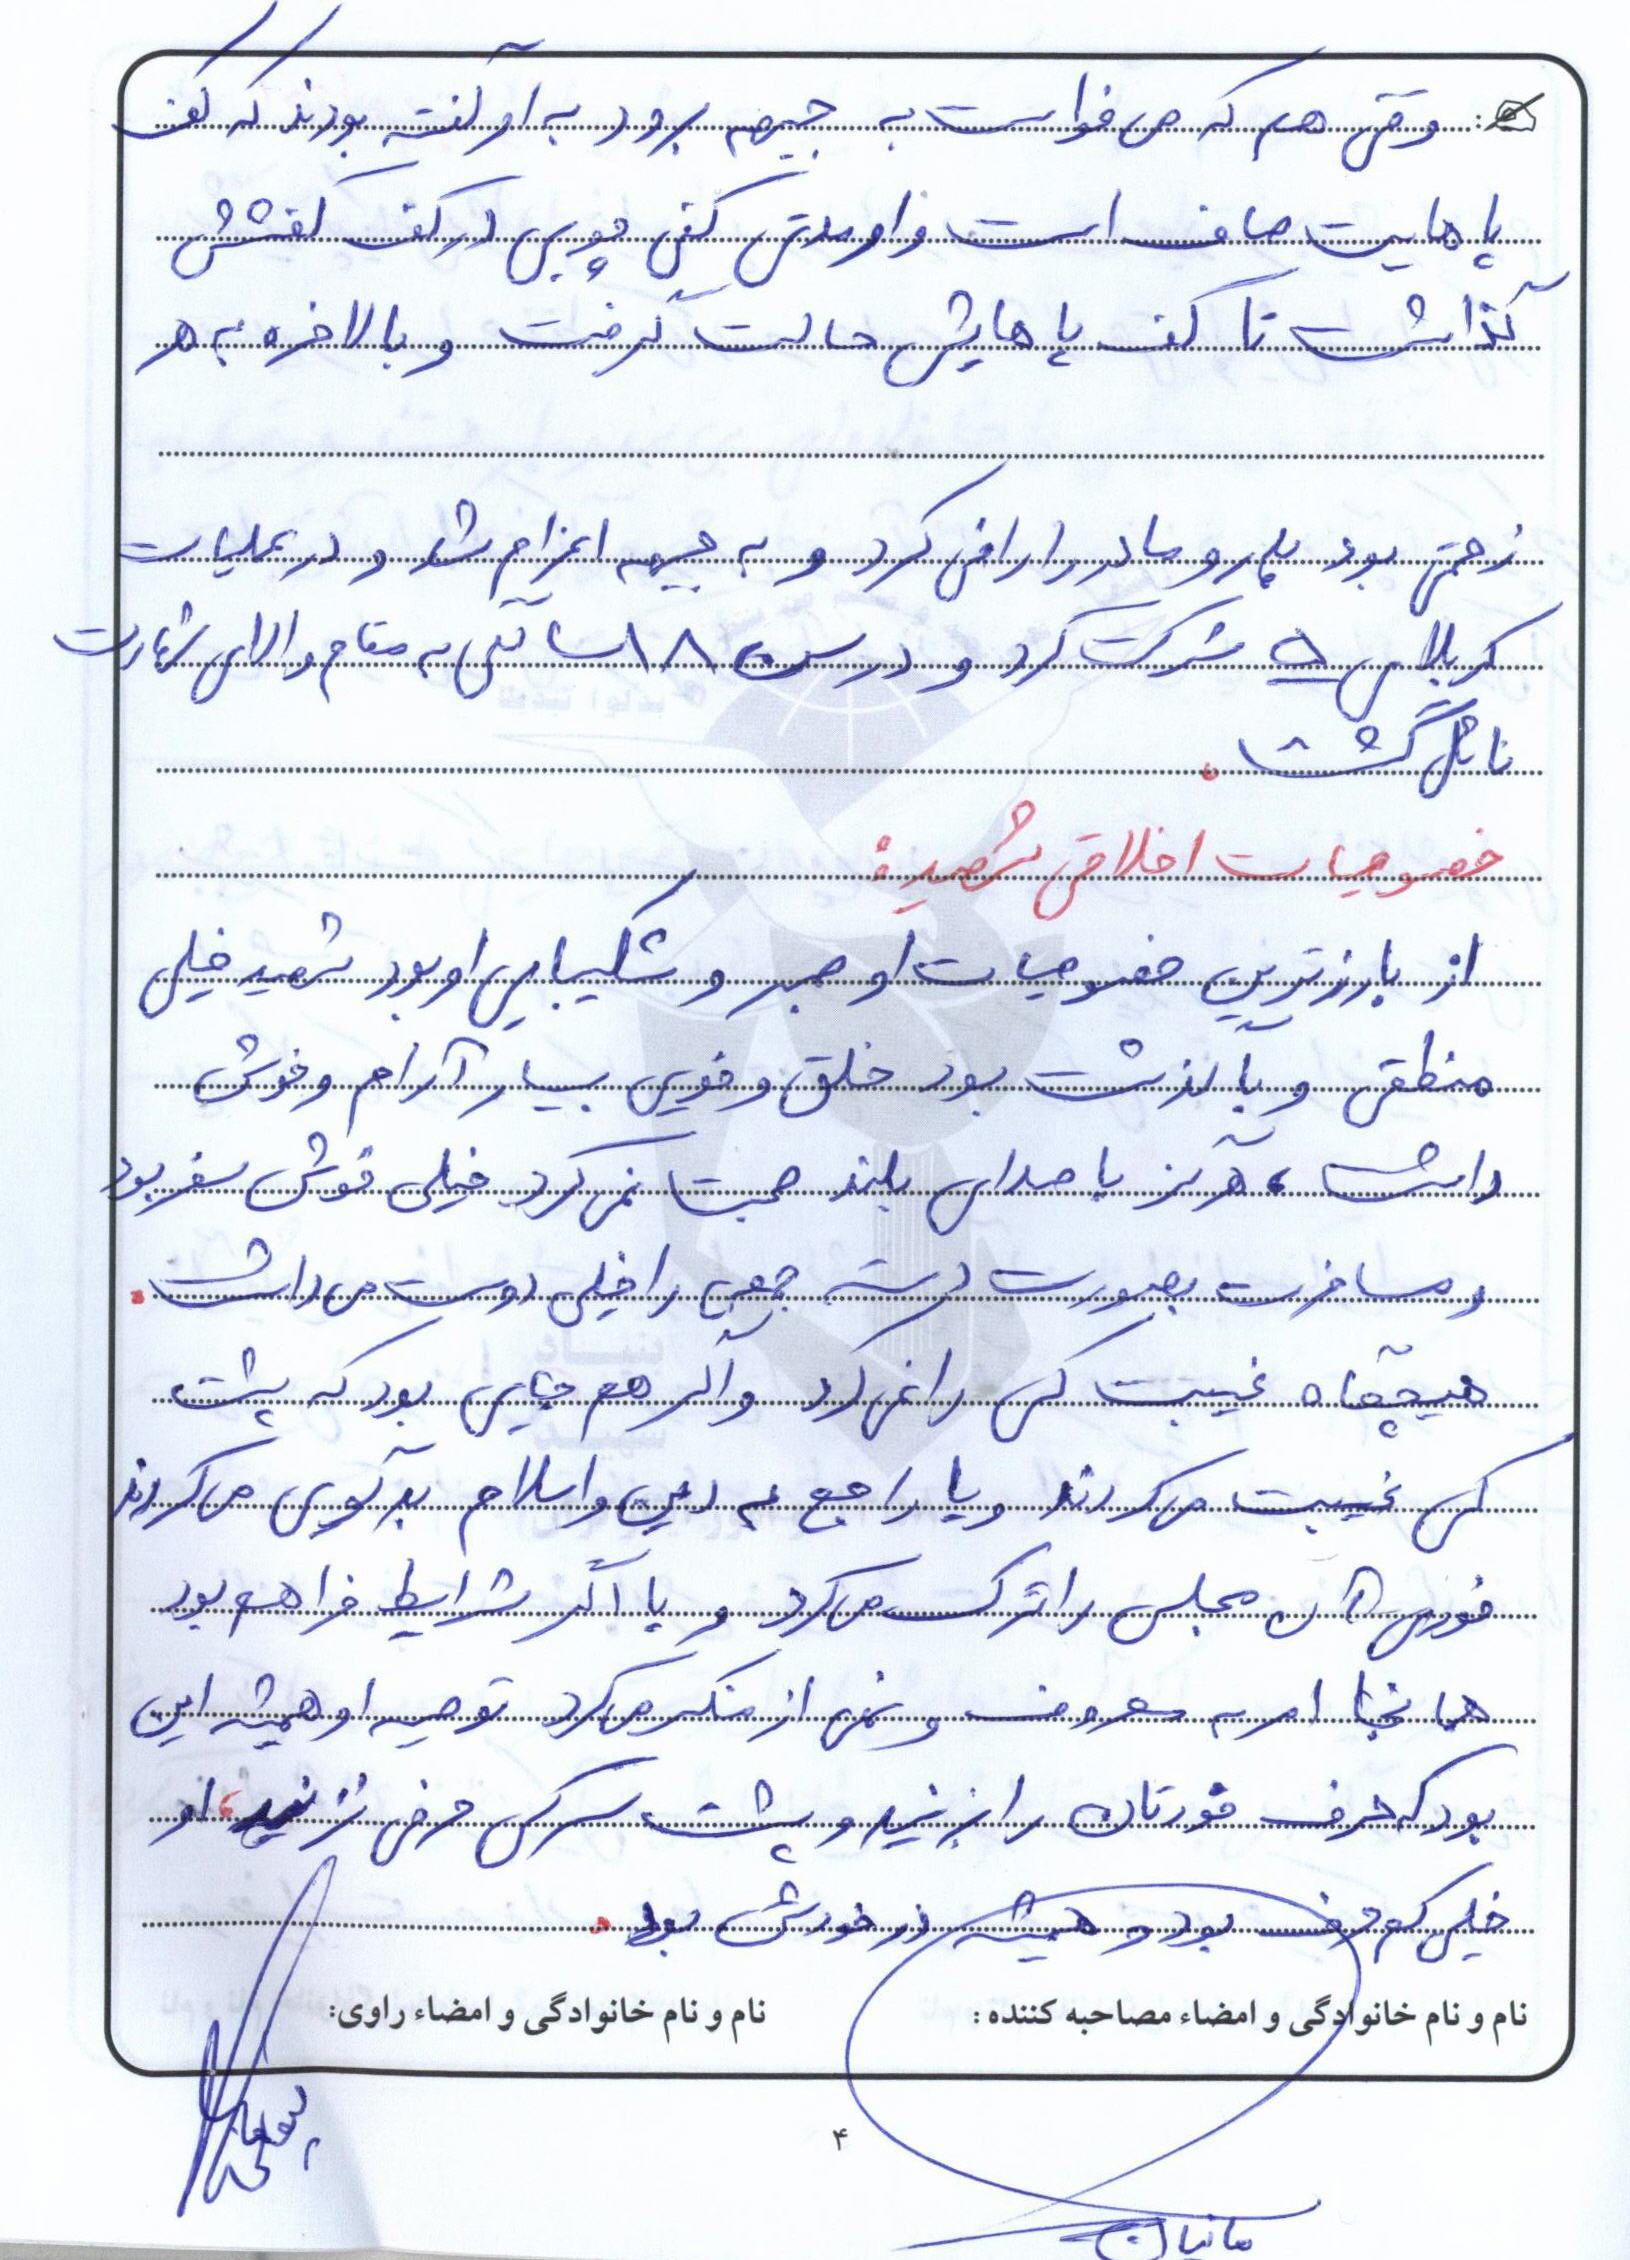 وقتی هم که می خواست به جبهه برود به او گفته بودند که کف
پاهایت صاف است و او مدتی کفی چوبی در کف کفشش
گذاشت تا کف پاهایش حالت گرفت و بالاخره به هر
زحمتی بود پدر و مادر را راضی کرد و به جبهه اعزام شد و در عملیات
کربلای ۵ شرکت کرد و در سن ۱۸ سالگی به مقام والای شهادت
نائل گشت.
خصوصیات اخلاقی شهید:
از بارزترین خصوصیات او صبر و شکیبایی او بود شهید خیلی
منطقی و با گذشت بود خلق و خویی بسیار آرام و خوش
داشت، هرگز با صدای بلند صحبت نمی کرد خیلی خوش سفر بود
و مسافرت بصورت دسته جمعی را خیلی دوست می داشت.
هیچگاه غیبت کسی را نمی کرد و اگر هم جایی بود که پشت
کسی غیبت می کردند و یا راجع به دین و اسلام بدگویی می کردند
فوری آن مجلس را ترک می کرد و یا اگر شرایط فراهم بود
همانجا امر به معروف و نهی از منکر می کرد توصیه او همیشه این
بود که حرف خودتان را بزنید و پشت سر کسی حرفی نزنید، او
خیلی کم حرف بود و همیشه در خودش بود.
نام و نام خانوادگی و امضاء مصاحبه کننده: نام و نام خانوادگی و امضاء راوی:
۴